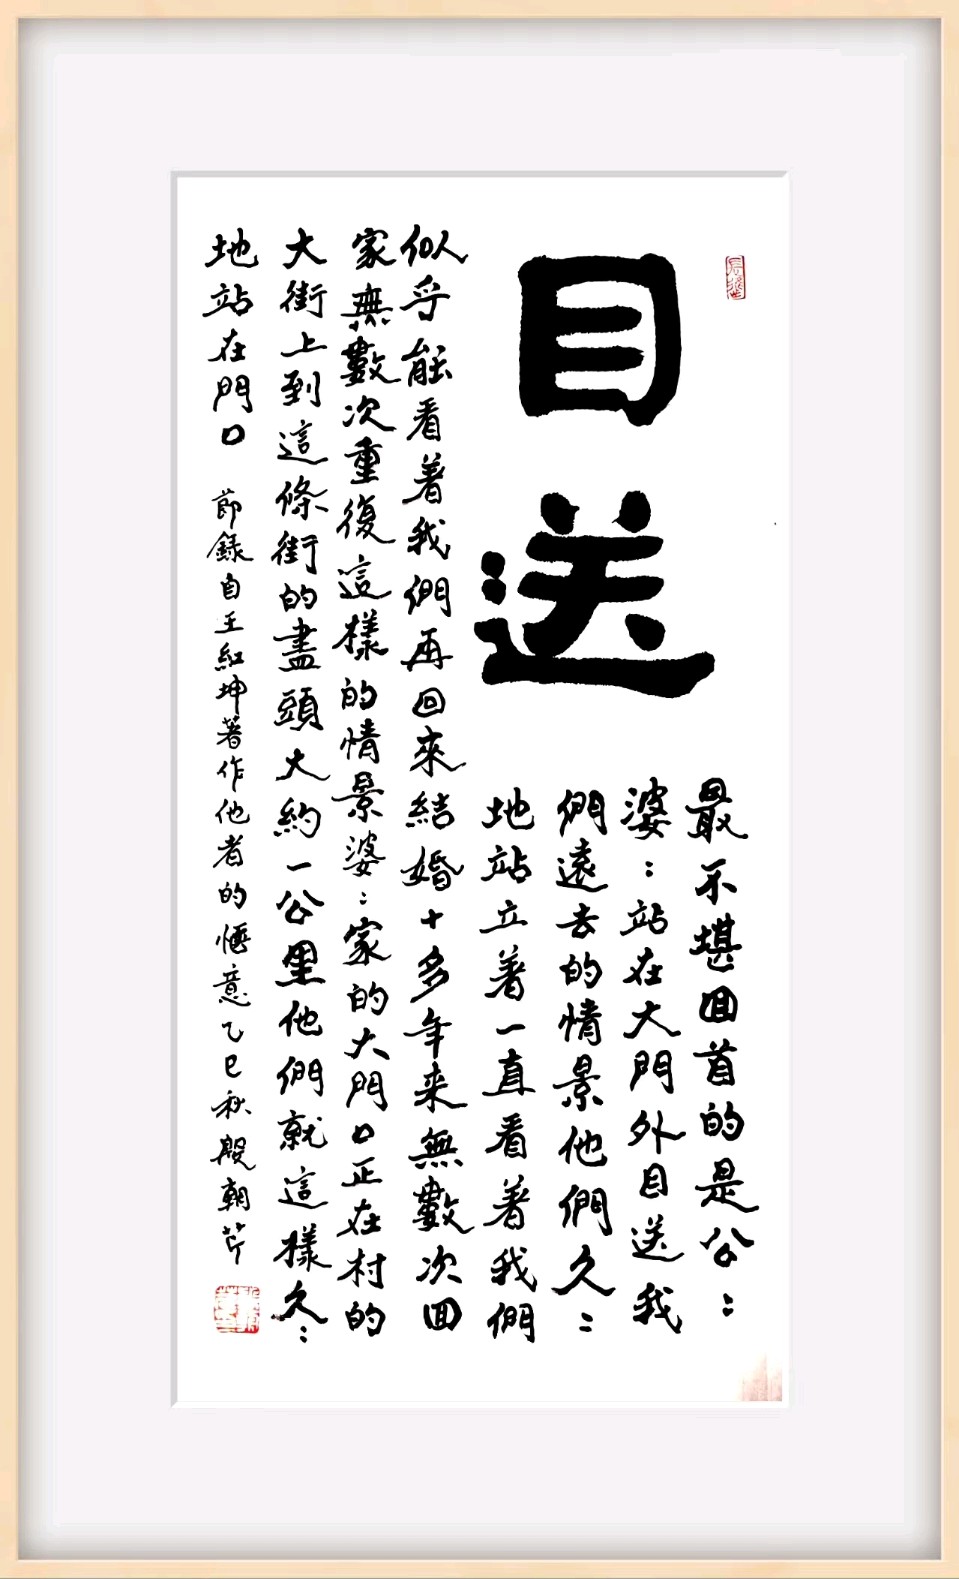 目送
最不堪回首的是公：
婆：站在大門外目送我
們遠去的情景他們久：
地站立著一直看著我們
似乎能看著我們再回來結婚十多年来無數次回
家無數次重復這樣的情景婆：家的大門口正在村的
大街上到這條街的盡頭大約一公里他們就這樣久：
地站在門口 節錄自王紅坤著作他者的愜意乙巳秋殷朝芹